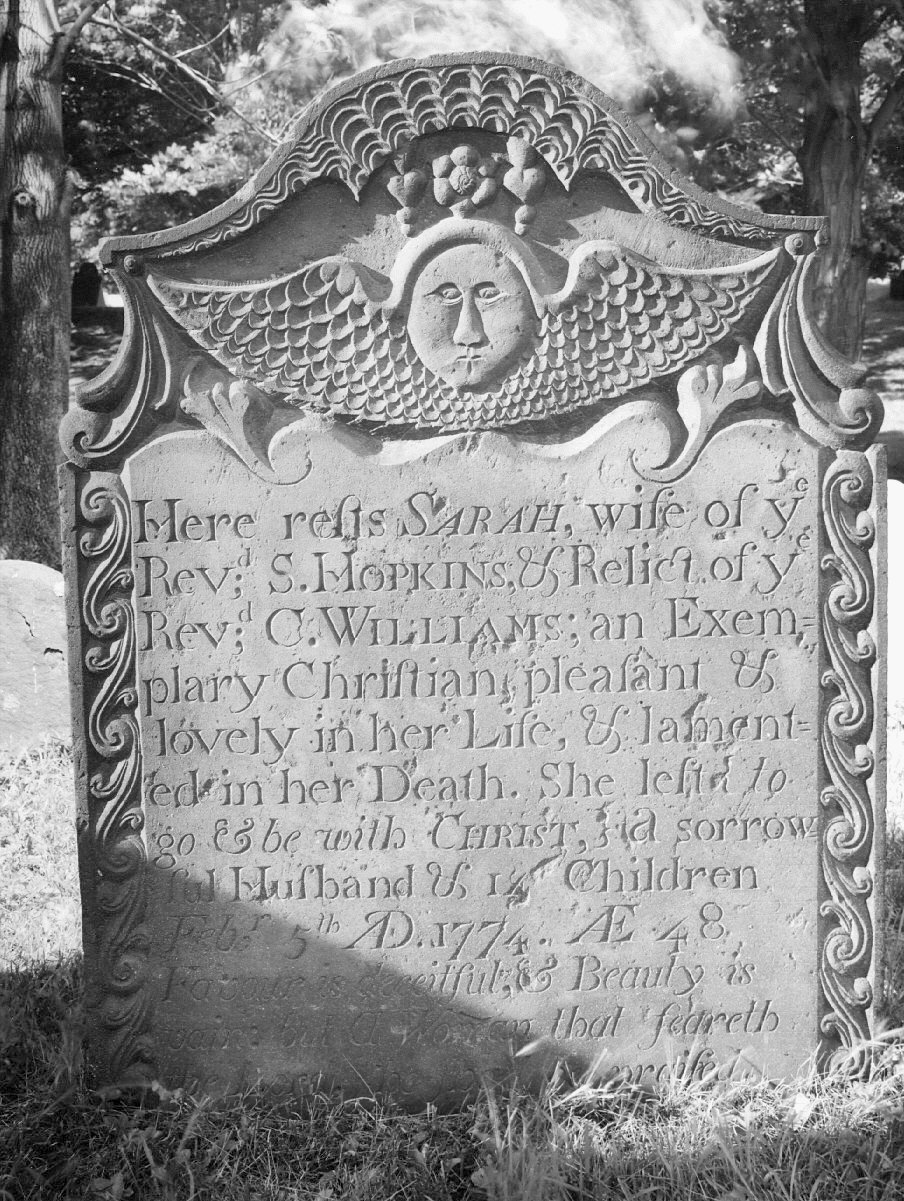 Here reſts SARAH, wife of yᵉ
Revᵈ; S. HOPKINS, & Relict. of yᵉ
Revᵈ; C. WILLIAMS; an Exem=
plary Chriſtian, pleaſant &
lovely in her Life, & lament=
ed in her Death. She left to
go & be with CHRIST, a sorrow
ful Huſband & Children
Febʳ. 5ᵗʰ AD. 1774. Æ 48.
Favour is deceitful, & Beauty is
vain: but A Woman that feareth
the praiſed